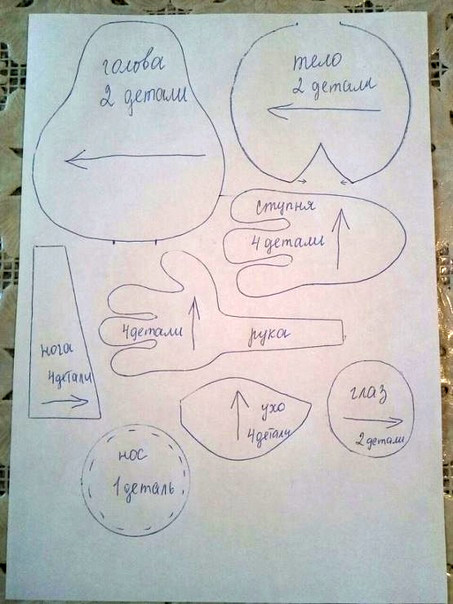 голова
2 детали
тело
2 детали
ступня
4 детали
4 детали
рука
нога
4 детали
ухо
4 детали
глаз
2 детали
нос
1 деталь